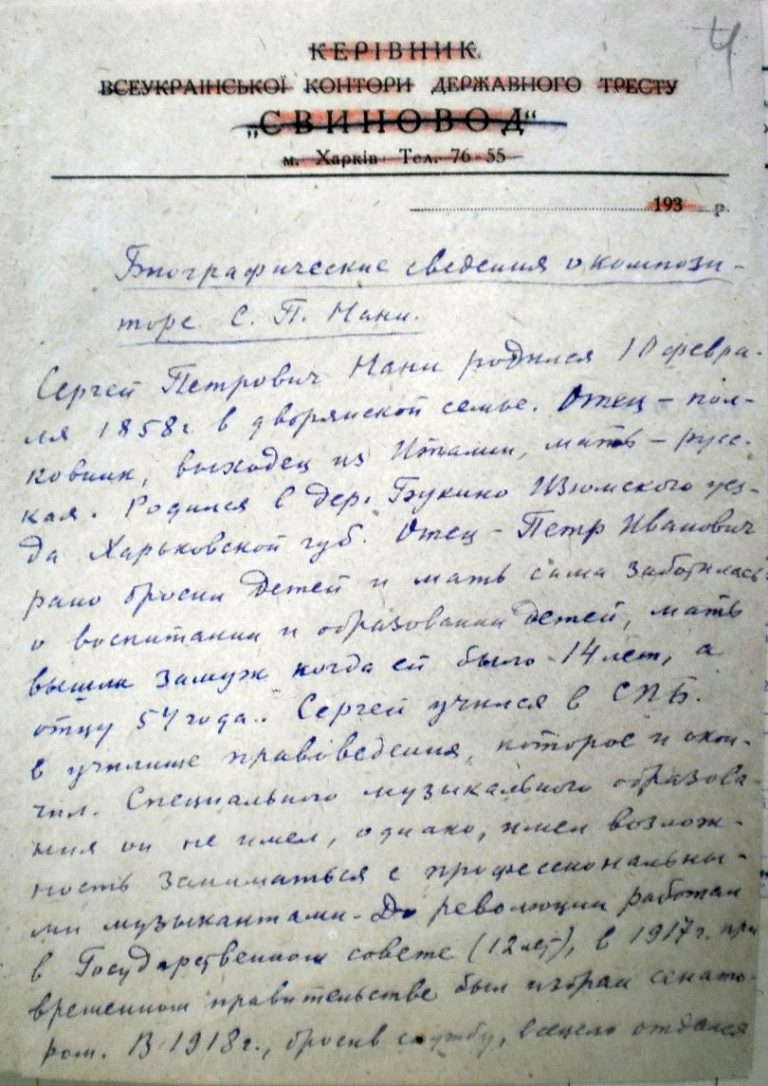 4
КЕРІВНИК
ВСЕУКРАІНСЬКОЇ КОНТОРИ ДЕРЖАВНОГО ТРЕСТУ
„СВИНОВОД“
м. Харків Тел. 76-55
193 р.
Биографические сведения о компози-
торе С. П. Нани.
Сергей Петрович Нани родился 10 февра-
ля 1858г в дворянской семье. Отец – пол-
ковник, выходец из Италии, мать – русс-
кая. Родился в дер. Букино Изюмского уез-
да Харьковской губ. Отец – Петр Иванович
рано бросил детей и мать сама заботилась
о воспитании и образовании детей, мать
вышла замуж когда ей было 14 лет, а
отцу 54 года. Сергей учился в СПБ.
в училище правоведения, которое и окон-
чил. Специального музыкального образова-
ния он не имел, однако, имел возмож-
ность заниматься с профессиональны-
ми музыкантами. До революции работал
в Государственном совете (12 лет), в 1917г. при
временном правительстве был избран сенато-
ром. В 1918г., бросив службу, всецело отдался